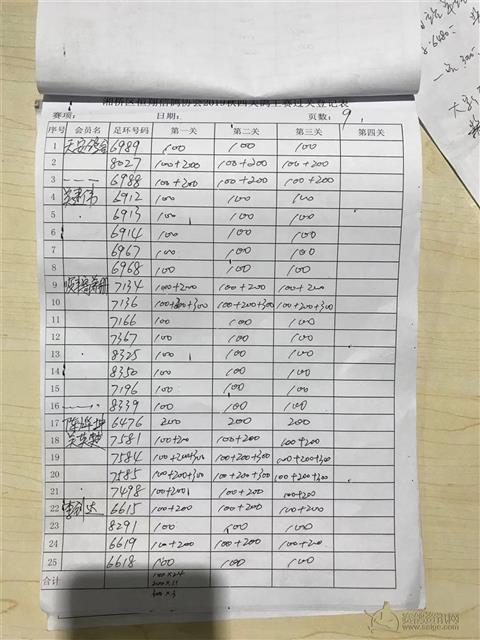 湘桥区恒翔信鸽协会2019秋四关鸽王赛过关登记表
赛项: 日期: 页数: 9
序号 会员名 足环号码 第一关 第二关 第三关 第四关
1 天安鸽舍 6989 100 100 100
2 8027 100+200 100+200 100+200
3 6988 100+200 100+200 100+200
4 6912 100 100 100
5 6913 100 100 100
6 6914 100 100 100
7 6967 100 100 100
8 6968 100 100 100
9 7134 100+200 100+200 100+200
10 7136 100+200+300 100+200+300 100+200+300
11 7166 100 100 100
12 7367 100 100 100
13 8325 100 100 100
14 8350 100 100 100
15 7196 100 100 100
16 8339 100 100 100
17 6476 200 200 200
18 7581 100+200 100+200 100+200
19 7584 100+200+300 100+200+300 100+200+300
20 7585 100+200+300 100+200+300 100+200+300
21 7498 100+200 100+200 100+200
22 6615 100+200 100+200 100+200
23 8291 100 100 100
24 6619 100+200 100+200 100+200
25 6618 100 100 100
合计
100×24
200×11
300×3
赛鸽资讯网
www.saige.com